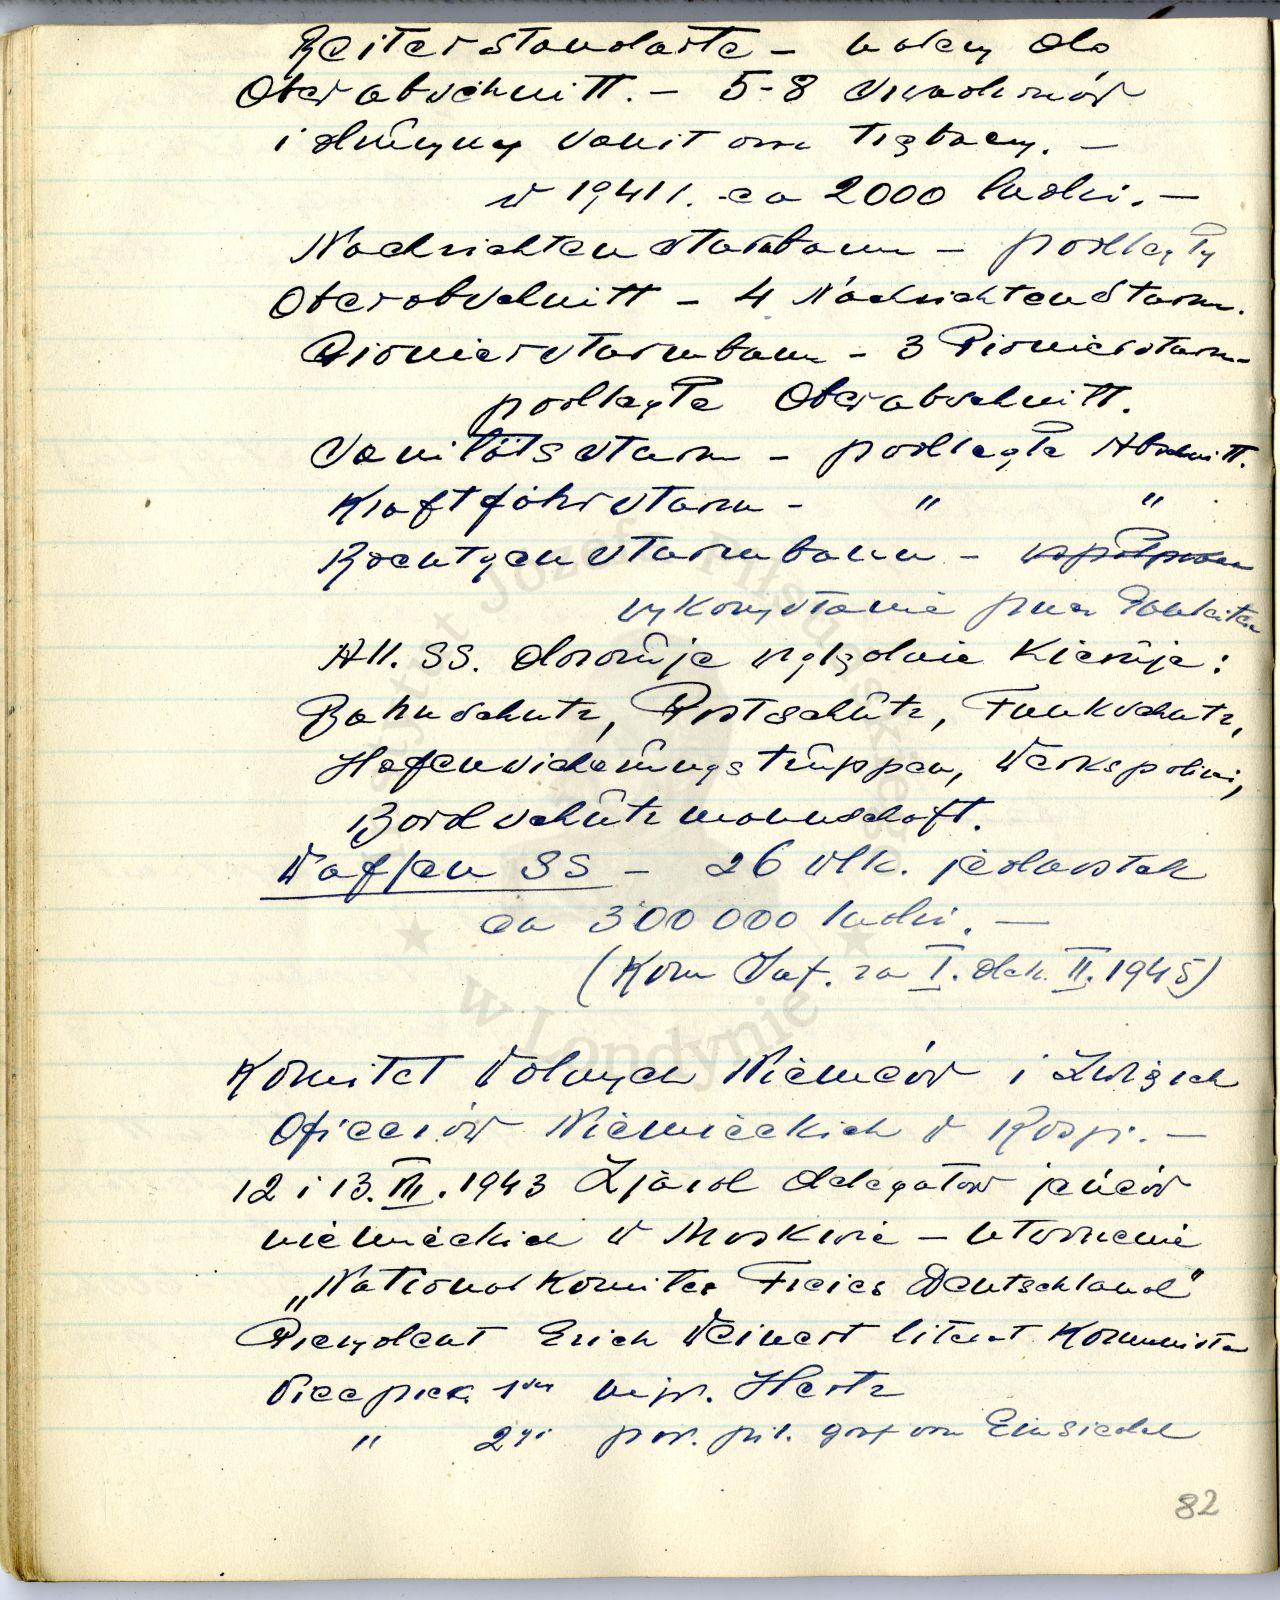 Reiterstandarte – należy do
Oberabschnitt. – 5-8 szwadronów
i drużyny sanit oraz trębaczy. –
w 1941 r. ca 2000 ludzi. –
Nachrichtensturmbann – podległy
Oberabschnitt – 4 Nachrichtensturm.
Pioniersturmbann – 3 Pioniersturm –
podległe Oberabschnitt.
Sanitätssturm – podległe Abschnitt.
Kraftfahrsturm – " "
Roentgensturmbann –
wykorzystanie przez
All. SS. dozoruje względnie kieruje:
Bahnschutz, Postschutz, Funkschutz,
Hafensicherungstruppen, Werkspolizei,
Bordschutzmannschaft.
Waffen SS – 26 wlk. jednostek
ca 300 000 ludzi. –
(Kom Inf. za I. dek. II. 1945)
Komitet Wolnych Niemców i Związek
Oficerów Niemieckich w Rosji. –
12 i 13. VII. 1943 Zjazd delegatów jeńców
niemieckich w Moskwie – utworzenie
„Nationalkomitee Freies Deutschland"
Prezydent Erich Weinert literat komunista
Viceprez. 1szy mjr. Hertz
" 2gi por. pil. graf von Einsiedel
82
Instytut Józefa Piłsudskiego
w Londynie